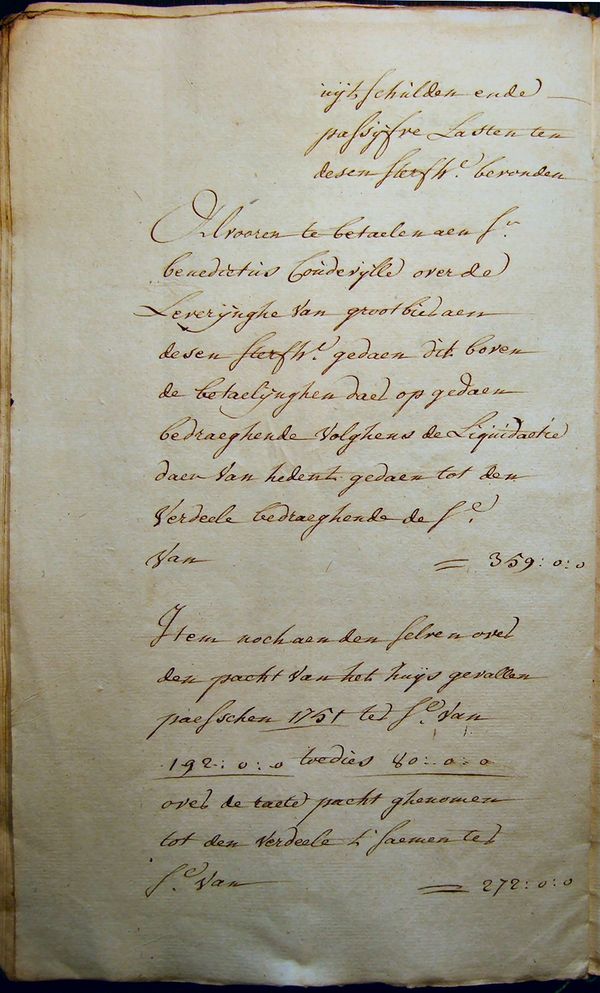 uijtschulden ende
passijfve Lasten ten
desen sterfh.e bevonden
Alvooren te betaelen aen S.r
benedictus Coudevylle over de
Leverijnghe van groot bier aen
desen sterfh.e gedaen dit boven
de betaelijnghen daer op gedaen
bedraeghende volghens de Liquidaetie
daer van hedent gedaen tot den
verdeele bedraeghende de S.e
van = 359:0:0
Item noch aen den selven over
den pacht van het huijs gevallen
paesschen 1751 ter S.e van
192:0:0 tvedies 80:0:0
over de raete pacht ghenomen
tot den verdeele t'saemen ter
S.e van = 272:0:0